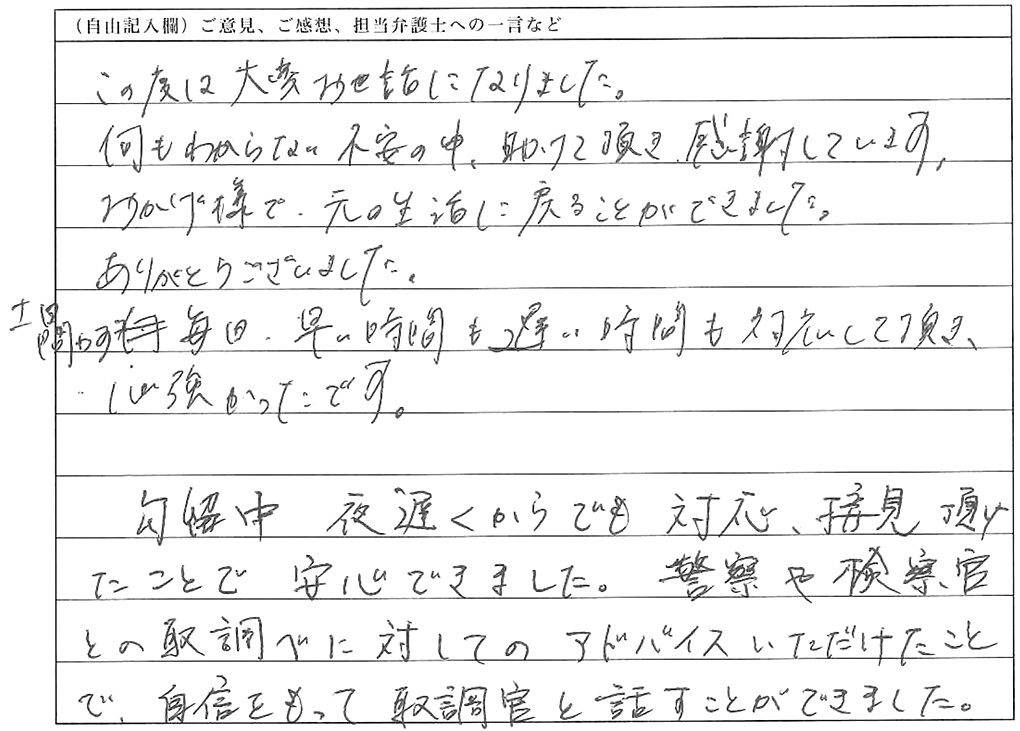 （自由記入欄）ご意見、ご感想、担当弁護士への一言など
この度は大変お世話になりました。
何もわからない不安の中、助けて頂き、感謝しています。
おかげ様で、元の生活に戻ることができました。
ありがとうございました。
土日問わず毎日、早い時間も遅い時間も対応して頂き、
心強かったです。
勾留中 夜遅くからでも 対応、接見 頂け
たことで 安心できました。警察や検察官
との取調べに対してのアドバイスいただけたこと
で、自信をもって取調官と話すことができました。